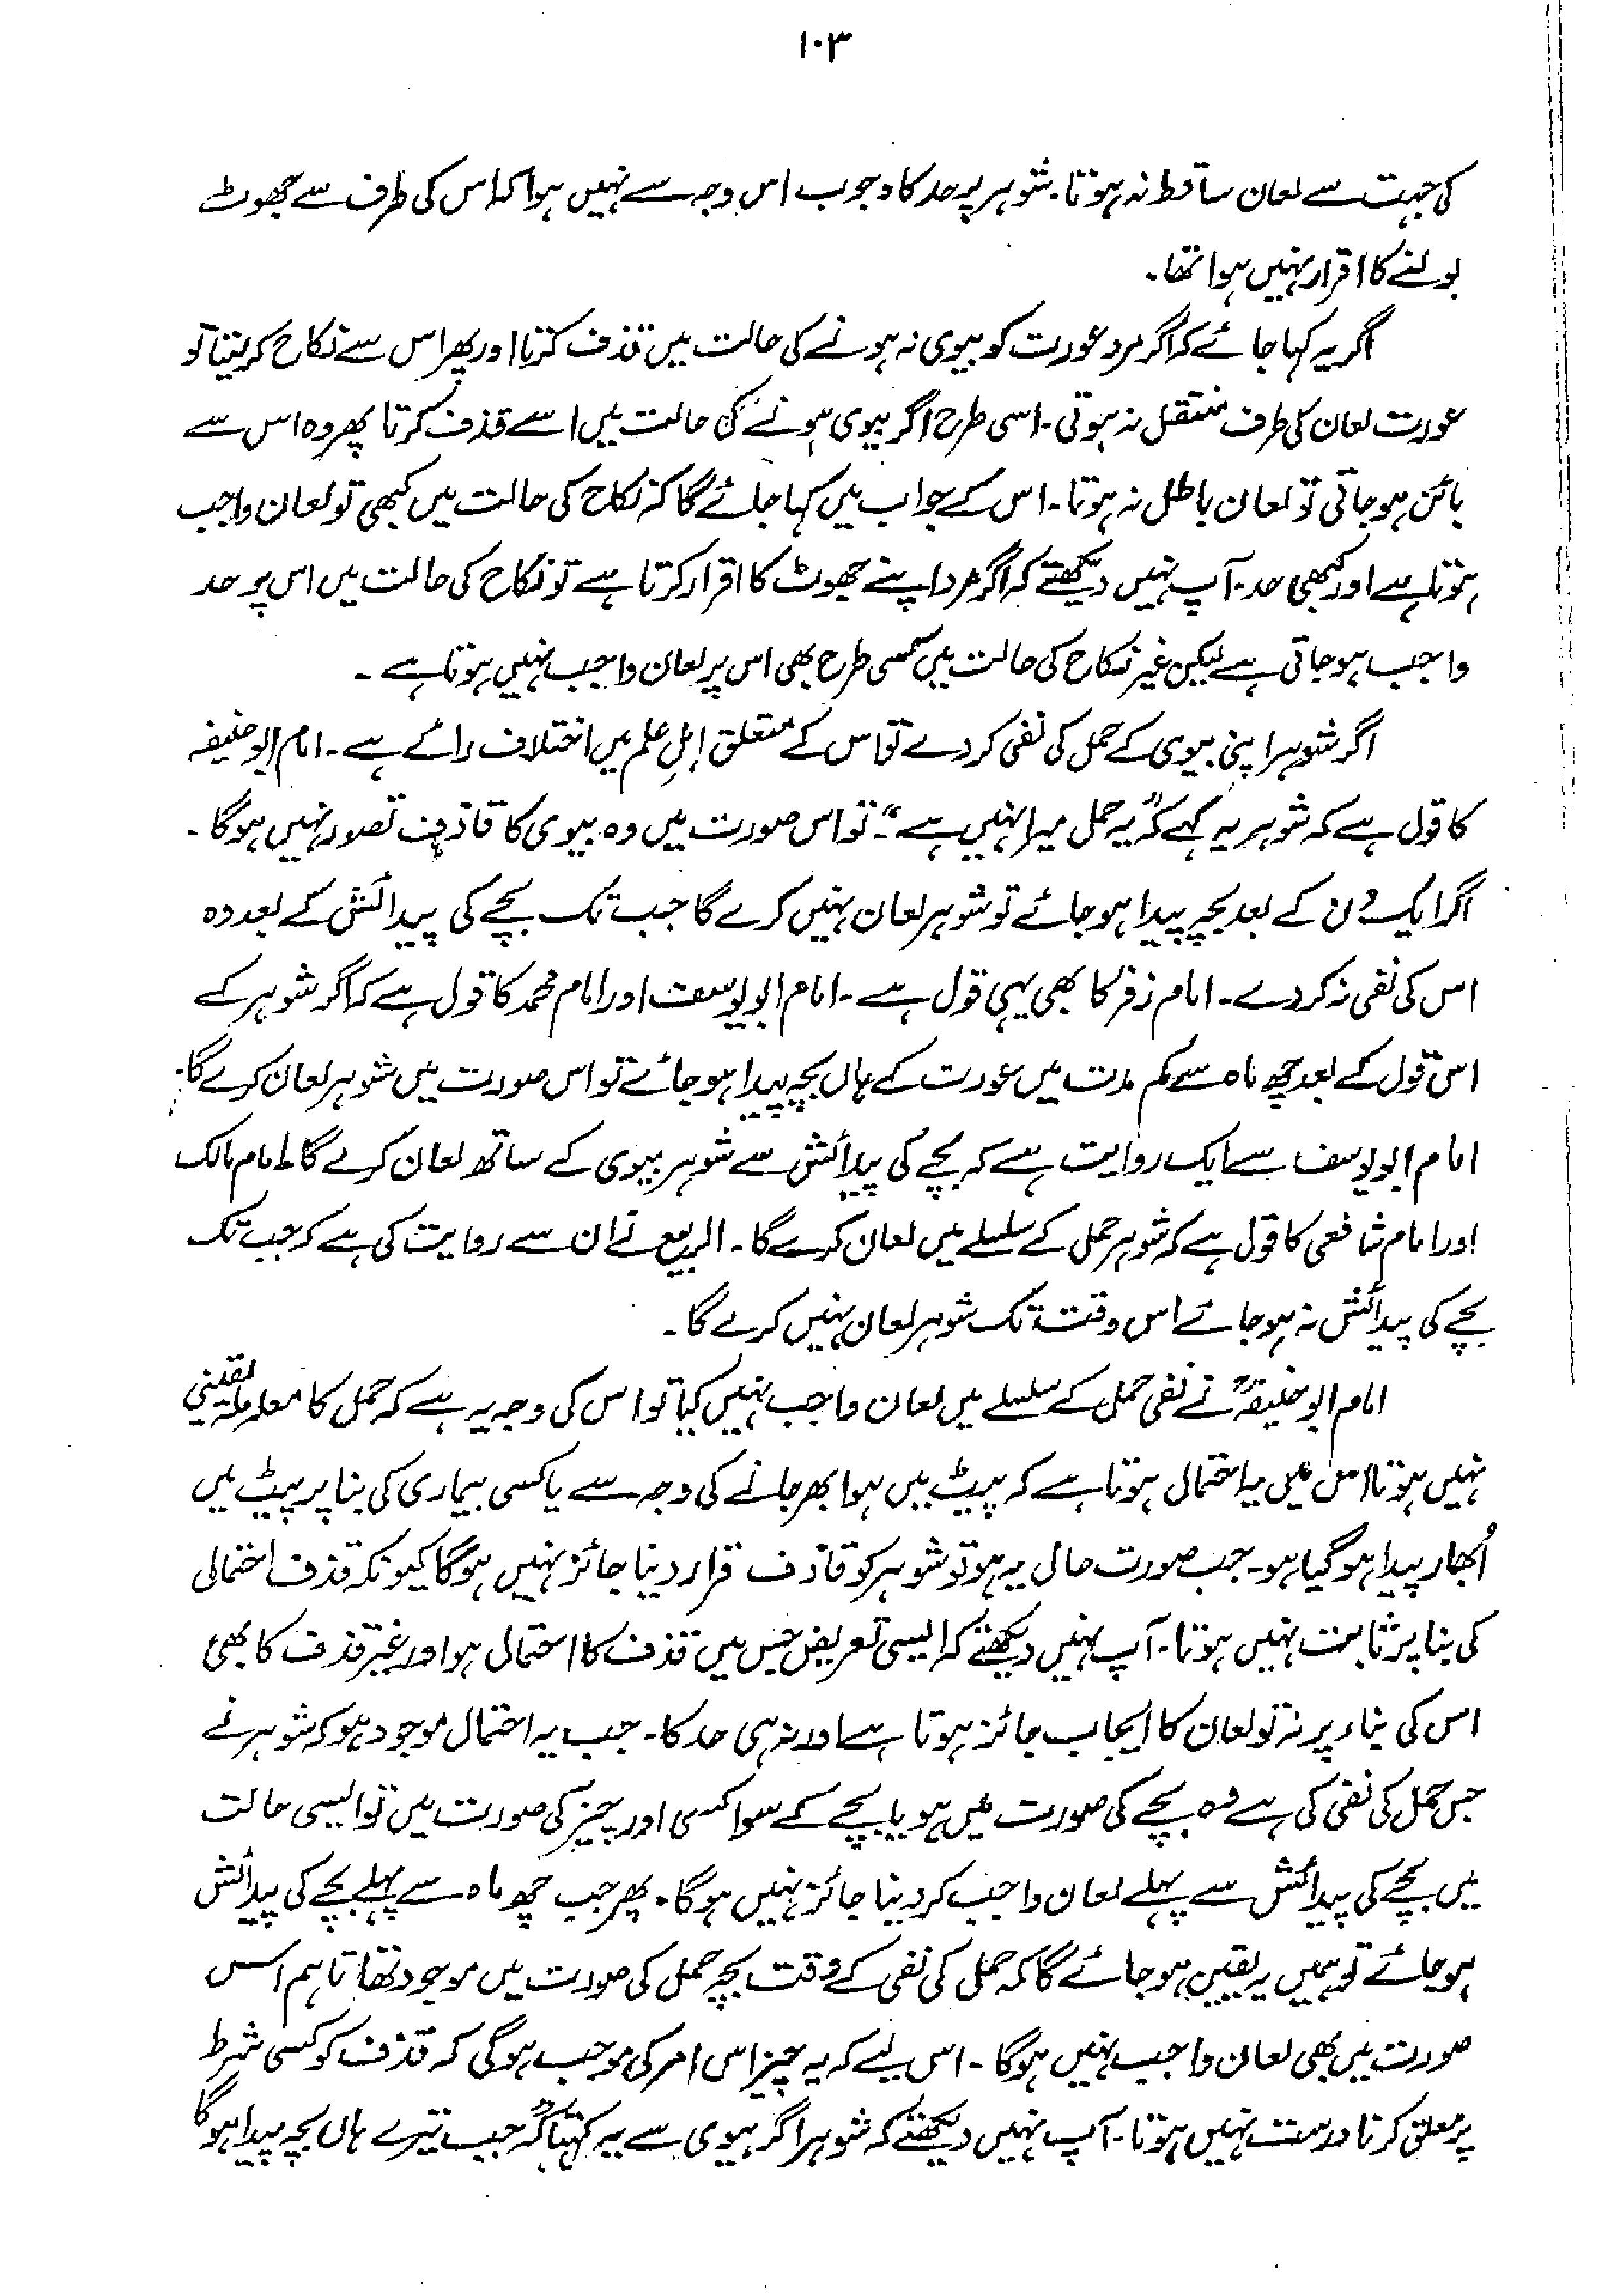 ۱۰۳
کی جہت سے لعان ساقط نہ ہوتا۔ شوہر پر حد کا وجوب اس وجہ سے نہیں ہوا کہ اس کی طرف سے جھوٹ
بولنے کا اقرار نہیں ہوا تھا۔
اگر یہ کہا جائے کہ اگر مرد عورت کو بیوی نہ ہونے کی حالت میں قذف کرتا اور پھر اس سے نکاح کر لیتا تو
عورت لعان کی طرف منتقل نہ ہوتی۔ اسی طرح اگر بیوی ہونے کی حالت میں اسے قذف کرتا پھر وہ اس سے
بائن ہو جاتی تو لعان باطل نہ ہوتا۔ اس کے جواب میں کہا جائے گا کہ نکاح کی حالت میں کبھی تو لعان واجب
ہوتا ہے اور کبھی حد۔ آپ نہیں دیکھتے کہ اگر مرد اپنے جھوٹ کا اقرار کرتا ہے تو نکاح کی حالت میں اس پر حد
واجب ہو جاتی ہے لیکن غیر نکاح کی حالت میں کسی طرح بھی اس پر لعان واجب نہیں ہوتا ہے۔
اگر شوہر اپنی بیوی کے حمل کی نفی کر دے تو اس کے متعلق اہلِ علم میں اختلاف رائے ہے۔ امام ابو حنیفہ
کا قول ہے کہ شوہر یہ کہے کہ "یہ حمل میرا نہیں ہے"۔ تو اس صورت میں وہ بیوی کا قاذف تصور نہیں ہوگا۔
اگر ایک دن کے بعد بچہ پیدا ہو جائے تو شوہر لعان نہیں کرے گا جب تک بچے کی پیدائش کے بعد وہ
اس کی نفی نہ کر دے۔ امام زفر کا بھی یہی قول ہے۔ امام ابو یوسف اور امام محمد کا قول ہے کہ اگر شوہر کے
اس قول کے بعد چھ ماہ سے کم مدت میں عورت کے ہاں بچہ پیدا ہو جائے تو اس صورت میں شوہر لعان کرے گا۔
امام ابو یوسف سے ایک روایت ہے کہ بچے کی پیدائش سے شوہر بیوی کے ساتھ لعان کرے گا۔ امام مالک
اور امام شافعی کا قول ہے کہ شوہر حمل کے سلسلے میں لعان کرے گا۔ الربیع نے ان سے روایت کی ہے کہ جب تک
بچے کی پیدائش نہ ہو جائے اس وقت تک شوہر لعان نہیں کرے گا۔
امام ابو حنیفہؒ نے نفی حمل کے سلسلے میں لعان واجب نہیں کیا تو اس کی وجہ یہ ہے کہ حمل کا معاملہ یقینی
نہیں ہوتا اس میں یہ احتمال ہوتا ہے کہ پیٹ میں ہوا بھر جانے کی وجہ سے یا کسی بیماری کی بنا پر پیٹ میں
اُبھار پیدا ہو گیا ہو۔ جب صورت حال یہ ہو تو شوہر کو قاذف قرار دینا جائز نہیں ہوگا کیونکہ قذف احتمال
کی بنا پر ثابت نہیں ہوتا۔ آپ نہیں دیکھتے کہ ایسی تعریض جس میں قذف کا احتمال ہو اور غیر قذف کا بھی
اس کی بناء پر نہ تو لعان کا ایجاب جائز ہوتا ہے اور نہ ہی حد کا۔ جب یہ احتمال موجود ہو کہ شوہر نے
جس حمل کی نفی کی ہے وہ بچے کی صورت میں ہو یا بچے کے سوا کسی اور چیز کی صورت میں تو ایسی حالت
میں بچے کی پیدائش سے پہلے لعان واجب کر دینا جائز نہیں ہوگا۔ پھر جب چھ ماہ سے پہلے بچے کی پیدائش
ہو جائے تو ہمیں یہ یقین ہو جائے گا کہ حمل کی نفی کے وقت بچہ حمل کی صورت میں موجود تھا تاہم اس
صورت میں بھی لعان واجب نہیں ہوگا۔ اس لیے کہ یہ چیز اس امر کی موجب ہوگی کہ قذف کو کسی شرط
پر معلق کرنا درست نہیں ہوتا۔ آپ نہیں دیکھتے کہ شوہر اگر بیوی سے یہ کہتا کہ "جب تیرے ہاں بچہ پیدا ہوگا